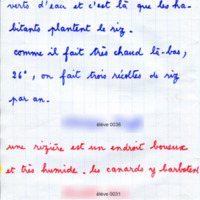 verts d'eau et c'est là que les ha-
bitants plantent le riz.
comme il fait très chaud là-bas,
26°, on fait trois récoltes de riz
par an.
élève 0036
une rizière est un endroit boueux
et très humide. les canards y barbotent
élève 0031